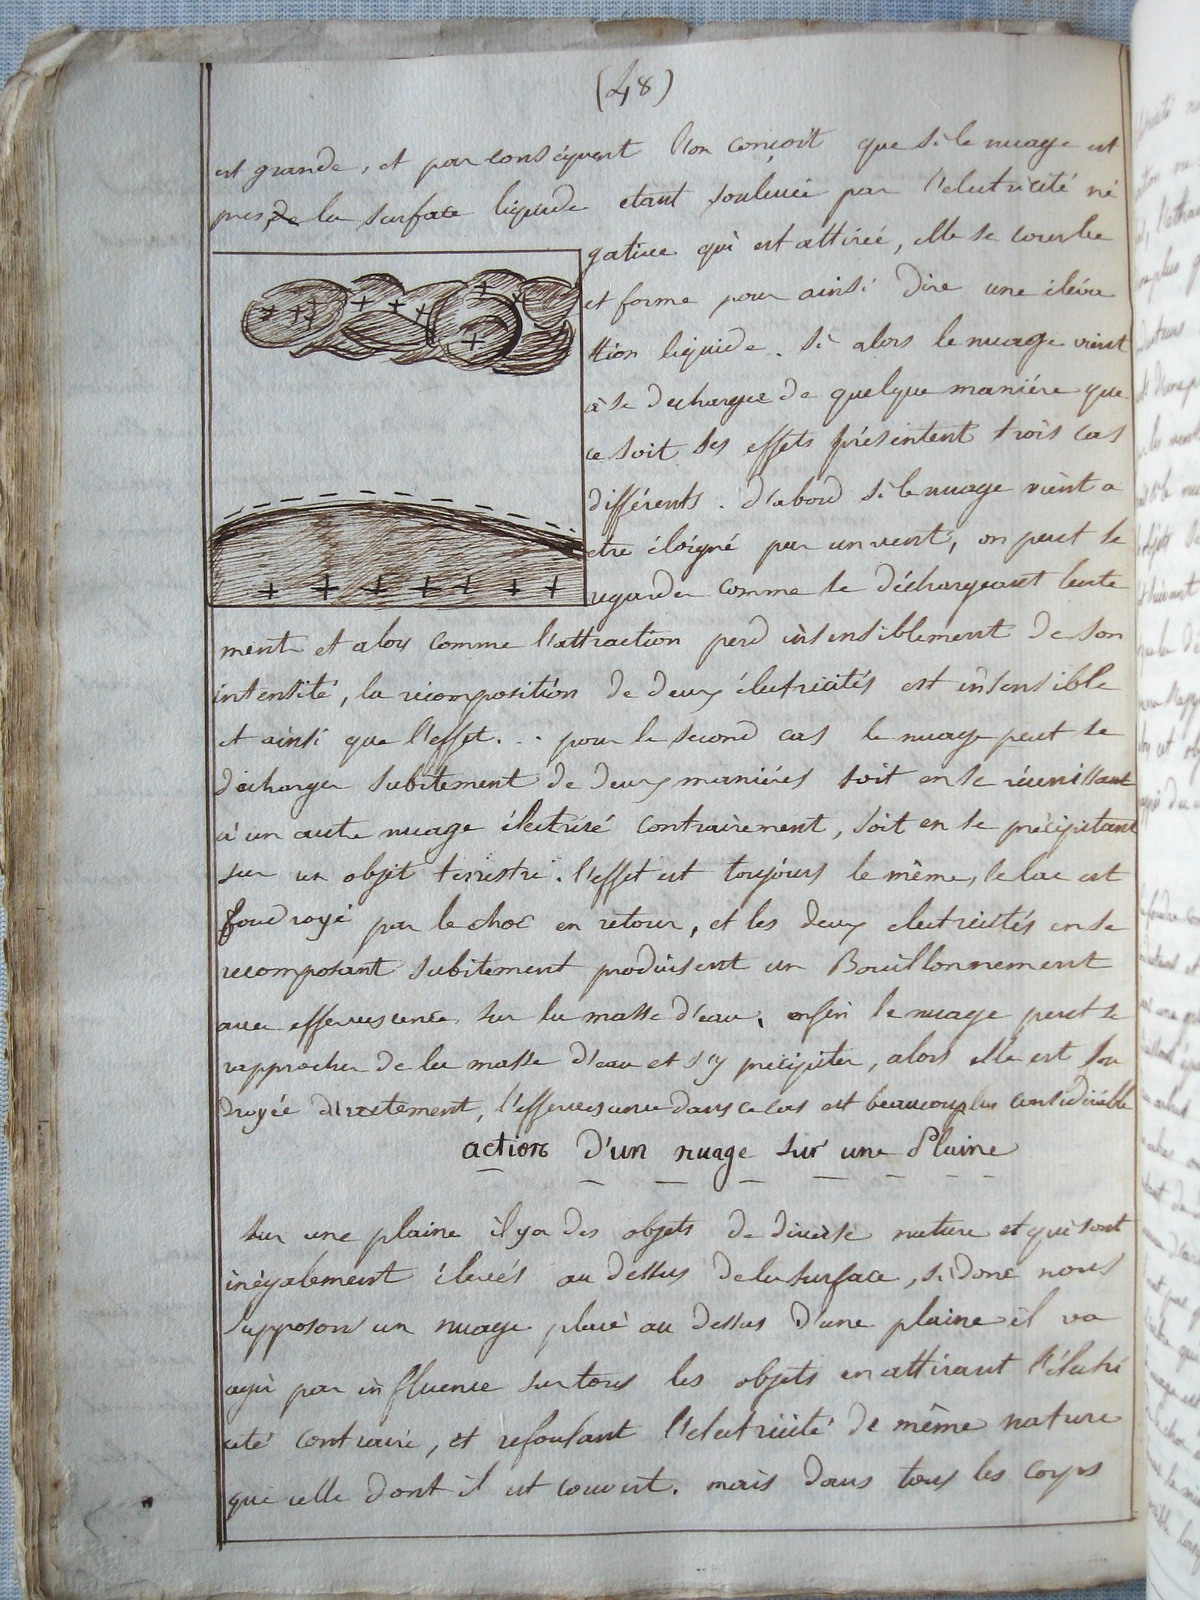 (48)
est grande, et par conséquent l'on conçoit que si le nuage est
pres de la surface liquide etant soulevée par l'electricité né
gative qui est attirée, elle se courbe
et forme pour ainsi dire une éléva
tion liquide. Si alors le nuage vient
à se decharger de quelque maniére que
ce soit ses effets présentent trois cas
différents. d'abord si le nuage vient a
etre éloigné par un vent, on peut le
regarder comme se déchargeant lente
ment et alors comme l'attraction perd insensiblement de son
intensité, la récomposition de deux électricités est insensible
et ainsi que l'effet. .. pour le second cas le nuage peut se
décharger subitement de deux maniéres soit en se réunissant
à un autre nuage électrisé contrairement, soit en se précipitant
sur un objet terrestre. l'effet est toujours le même, le lac est
foudroyé par le choc en retour, et les deux electricités en se
recomposant subitement produisent un Bouillonnement
avec effervescence sur la masse d'eau. enfin le nuage peut se
rapprocher de la masse d'eau et s'y précipiter, alors elle est fou
droyée directement, l'effervescence dans ce cas est beaucoup plus considérable
action d'un nuage sur une Plaine
Sur une plaine il y a des objets de diverse nature et qui sont
inégalement élevés au dessus de la surface, si donc nous
supposons un nuage placé au dessus d'une plaine il va
agir par influence sur tous les objets en attirant l'électri
cité contraire, et refoulant l'electricité de même nature
que celle dont il est couvert. mais dans tous les corps